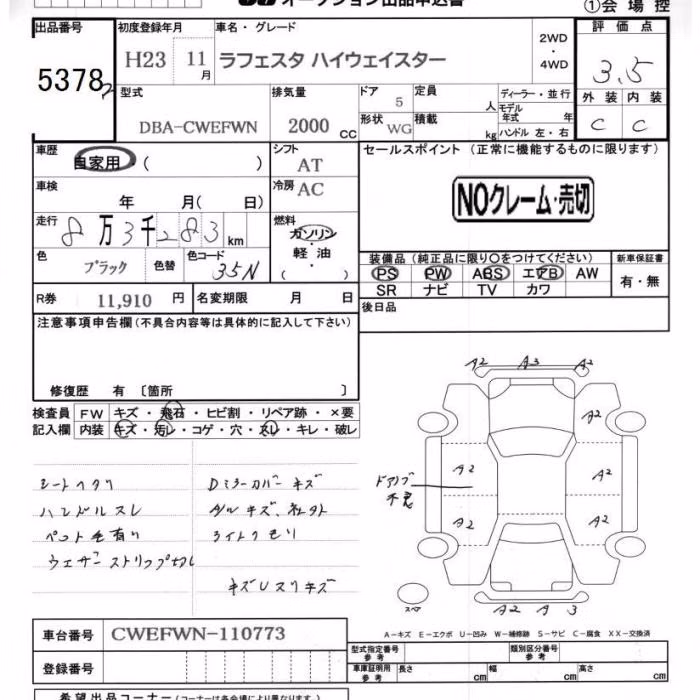 オークション出品申込書
①会場控
出品番号
5378
初度登録年月
H23 11月
車名・グレード
ラフェスタ ハイウェイスター
2WD
・
4WD
評価点
3.5
外装 内装
C C
型式
DBA-CWEFWN
排気量
2000 CC
ドア 5
形状 WG
定員 人
積載 kg
ディーラー・並行
モデル年式 年
ハンドル 左・右
車歴
自家用 ( )
シフト
AT
車検
年 月( 日)
冷房
AC
走行
8万3千283 km
燃料
ガソリン
・
軽油
( )
色
ブラック
色替
色コード
35N
R券 11,910 円
名変期限 月 日
セールスポイント (正常に機能するものに限ります)
NOクレーム・売切
装備品 (純正品に限り○をつけてください)
PS PW ABS エアB AW
SR ナビ TV カワ
新車保証書
有・無
後日品
注意事項申告欄(不具合内容等は具体的に記入して下さい)
修復歴 有 〔箇所 〕
検査員記入欄
FW キズ・飛石・ヒビ割・リペア跡・×要
内装 キズ・汚レ・コゲ・穴・スレ・キレ・破レ
シートヘタリ
ハンドルスレ
ペット毛有り
ウェザーストリップ切レ
Dミラーカバーキズ
ライトクモリ
A2 A3 A2
A2
A2
A2
A2
A2
ドアノブ
不良
スペア
A2 A 3
A-キズ E-エクボ U-凹み W-補修跡 S-サビ C-腐食 XX-交換済
車台番号 CWEFWN-110773
登録番号
型式指定番号 参考
類別区分番号 参考
車庫証明用 参考
長さ cm 幅 cm 高さ cm
希望出品コーナー(コーナーは各会場により異なります。)